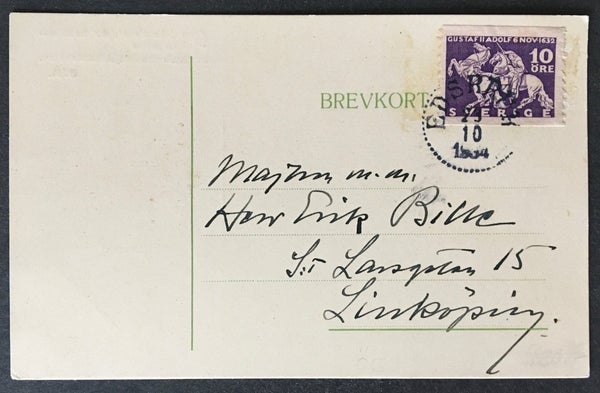 GUSTAF II ADOLF 6 NOV. 1632
10
ÖRE
SVERIGE
BREVKORT
23
10
1934
Majoren m.m.
Herr Erik Bille
S:t Larsgatan 15
Linköping.